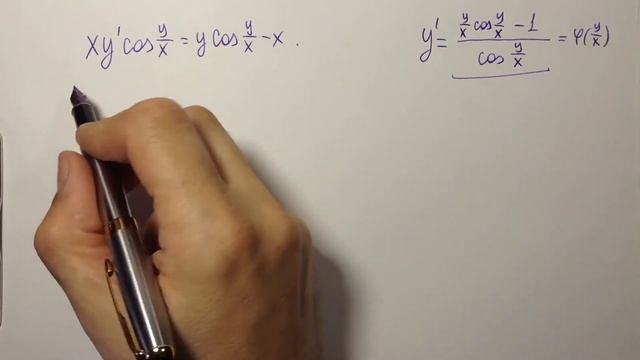 xy'cos y/x = y cos y/x - x .
y' = (y/x cos y/x - 1)/(cos y/x) = φ(y/x)